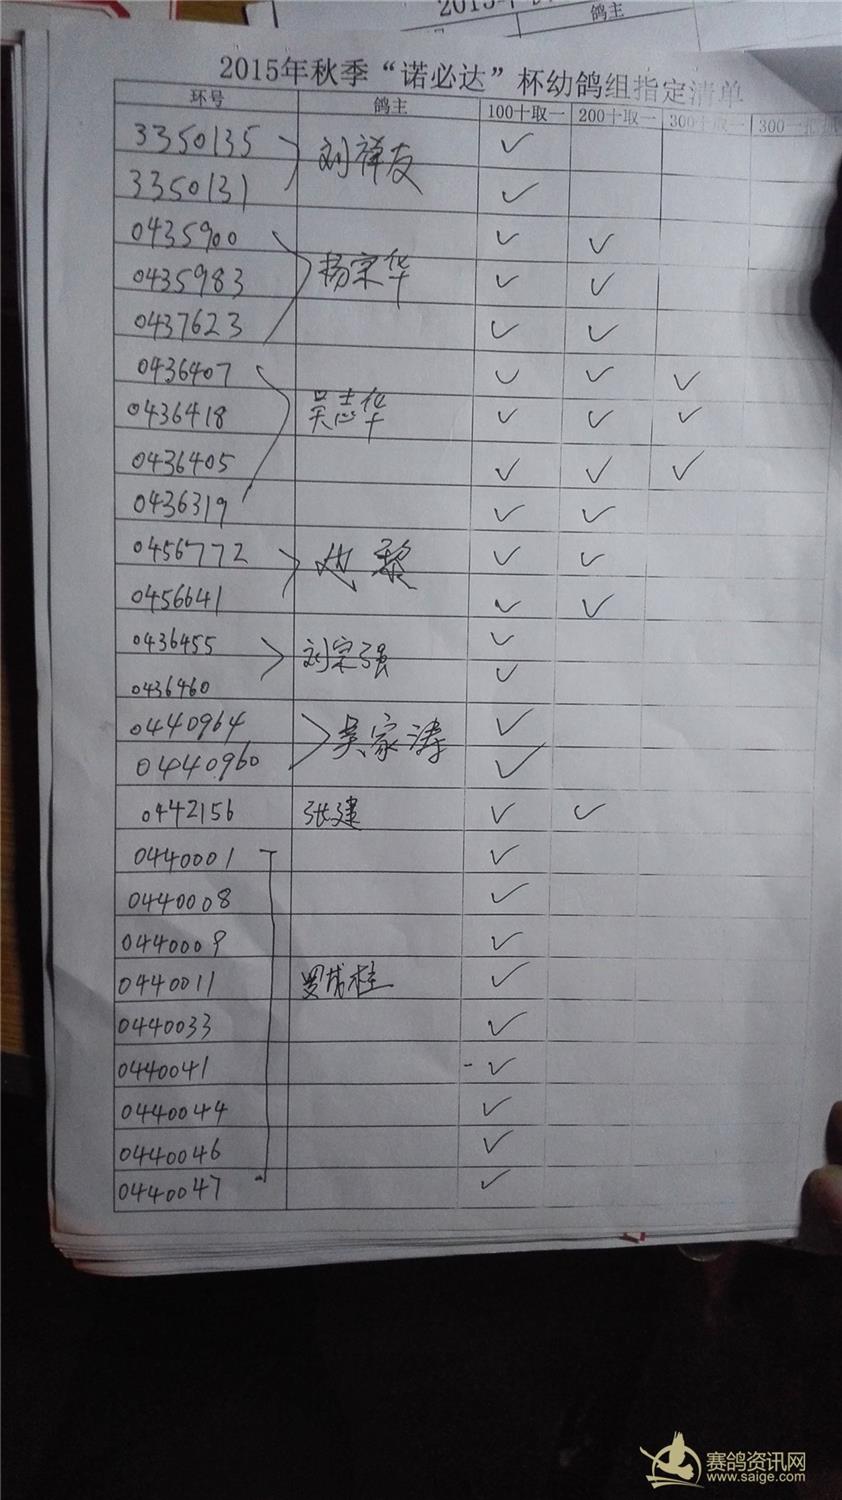 鸽主
2015年秋季“诺必达”杯幼鸽组指定清单
环号 鸽主 100十取一 200十取一 300十取一 300一
3350135 ✓
刘祥友
3350131 ✓
0435900 ✓ ✓
0435983 杨宗华 ✓ ✓
0437623 ✓ ✓
0436407 ✓ ✓ ✓
0436418 吴志华 ✓ ✓ ✓
0436405 ✓ ✓ ✓
0436319 ✓ ✓
0456772 ✓ ✓
黎
0456641 ✓ ✓
0436455 ✓
刘宗强
0436460 ✓
0440964 ✓
吴家涛
0440960 ✓
0442156 张建 ✓ ✓
0440001 ✓
0440008 ✓
0440009 ✓
0440011 罗成桂 ✓
0440033 ✓
0440041 - ✓
0440044 ✓
0440046 ✓
0440047 ✓
赛鸽资讯网
www.saige.com